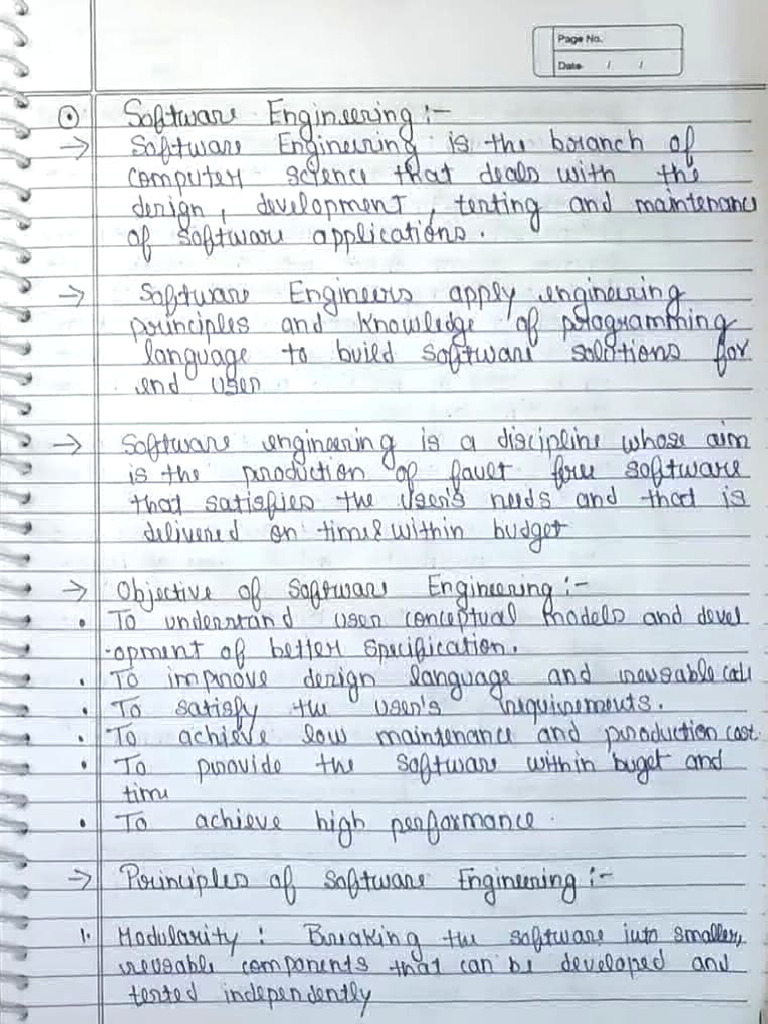 Page No.
Date / /
⊙ Software Engineering :-
→ Software Engineering is the branch of
computer science that deals with the
design, development, testing and maintenance
of software applications.
→ Software Engineers apply engineering
principles and knowledge of programming
language to build software solutions for
end user
→ Software engineering is a discipline whose aim
is the production of fault free software
that satisfies the user's needs and that is
delivered on time & within budget
→ Objective of software Engineering :-
• To understand user conceptual models and devel
-opment of better specification.
• To improve design language and reusable code
• To satisfy the user's requirements.
• To achieve low maintenance and production cost.
• To provide the software within buget and
time
• To achieve high performance.
→ Principles of software Engineering :-
1. Modularity : Breaking the software into smaller,
reusable components that can be developed and
tested independently